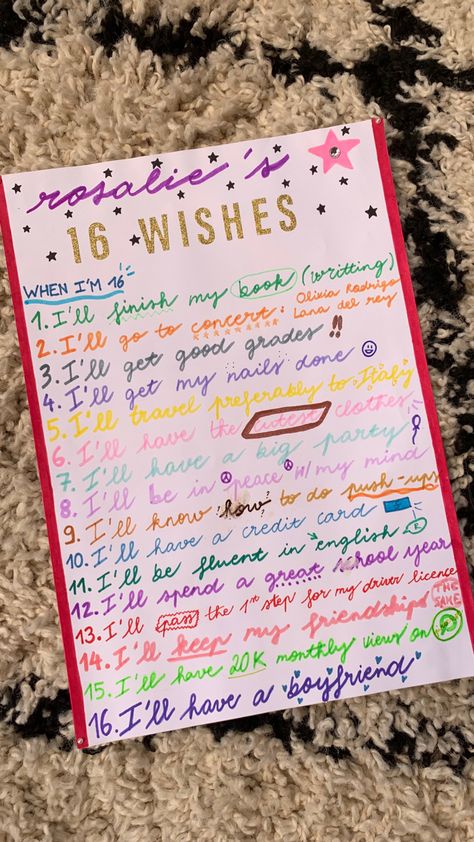 rosalie's
16 WISHES
WHEN I'M 16
1. I'll finish my book (writting)
2. I'll go to concert: Olivia Rodrigo
Lana del rey
3. I'll get good grades!!
4. I'll get my nails done
5. I'll travel preferably to Italy
6. I'll have the cutest clothes
7. I'll have a big party
8. I'll be in peace w/ my mind
9. I'll know how to do push-ups
10. I'll have a credit card
11. I'll be fluent in english
12. I'll spend a great school year
13. I'll pass the 1st step for my driver licence
14. I'll keep my friendships THE SAME
15. I'll have 20K monthly views on
16. I'll have a boyfriend